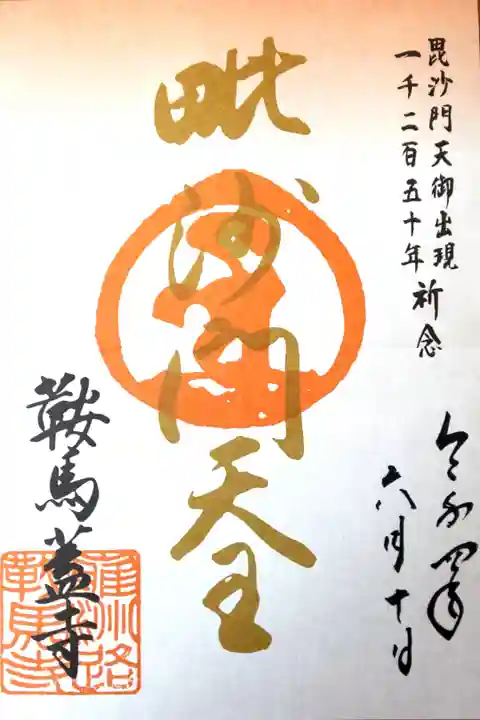 毘沙門天御出現
一千二百五十年祈念
令和四年
六月十日
毗沙門天王
鞍馬蓋寺